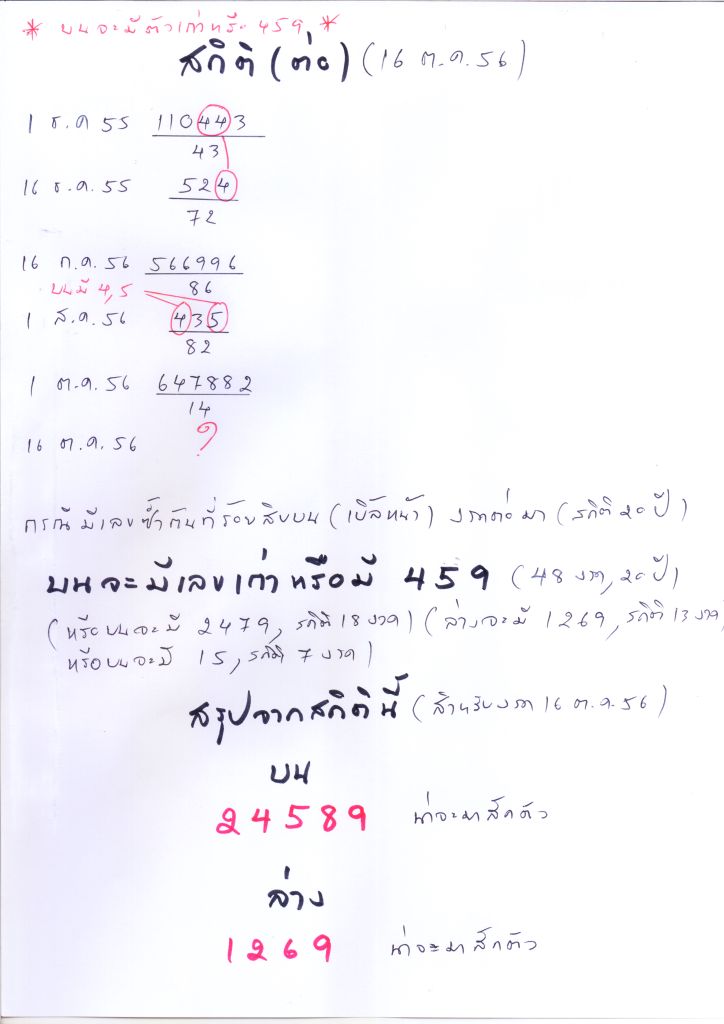 * บนจะมีตัวเก่าหรือ 459 *
สถิติ (ต่อ) (16 ต.ค. 56)
1 ธ.ค 55 110443
43
16 ธ.ค. 55 524
72
16 ก.ค. 56 566996
บนมี 4,5 86
1 ส.ค. 56 435
82
1 ต.ค. 56 647882
14
16 ต.ค. 56 ?
กรณีมีเลขซ้ำกันที่ร้อยสิบบน (เบิ้ลหน้า) งวดต่อมา (สถิติ 20 ปี)
บนจะมีเลขเก่าหรือมี 459 (48 งวด, 20 ปี)
(หรือบนจะมี 2479, สถิติ 18 งวด) (ล่างจะมี 1269, สถิติ 13 งวด,
หรือบนจะมี 15, สถิติ 7 งวด)
สรุปจากสถิตินี้ (สำหรับงวด 16 ต.ค. 56)
บน
24589 น่าจะมาสักตัว
ล่าง
1269 น่าจะมาสักตัว